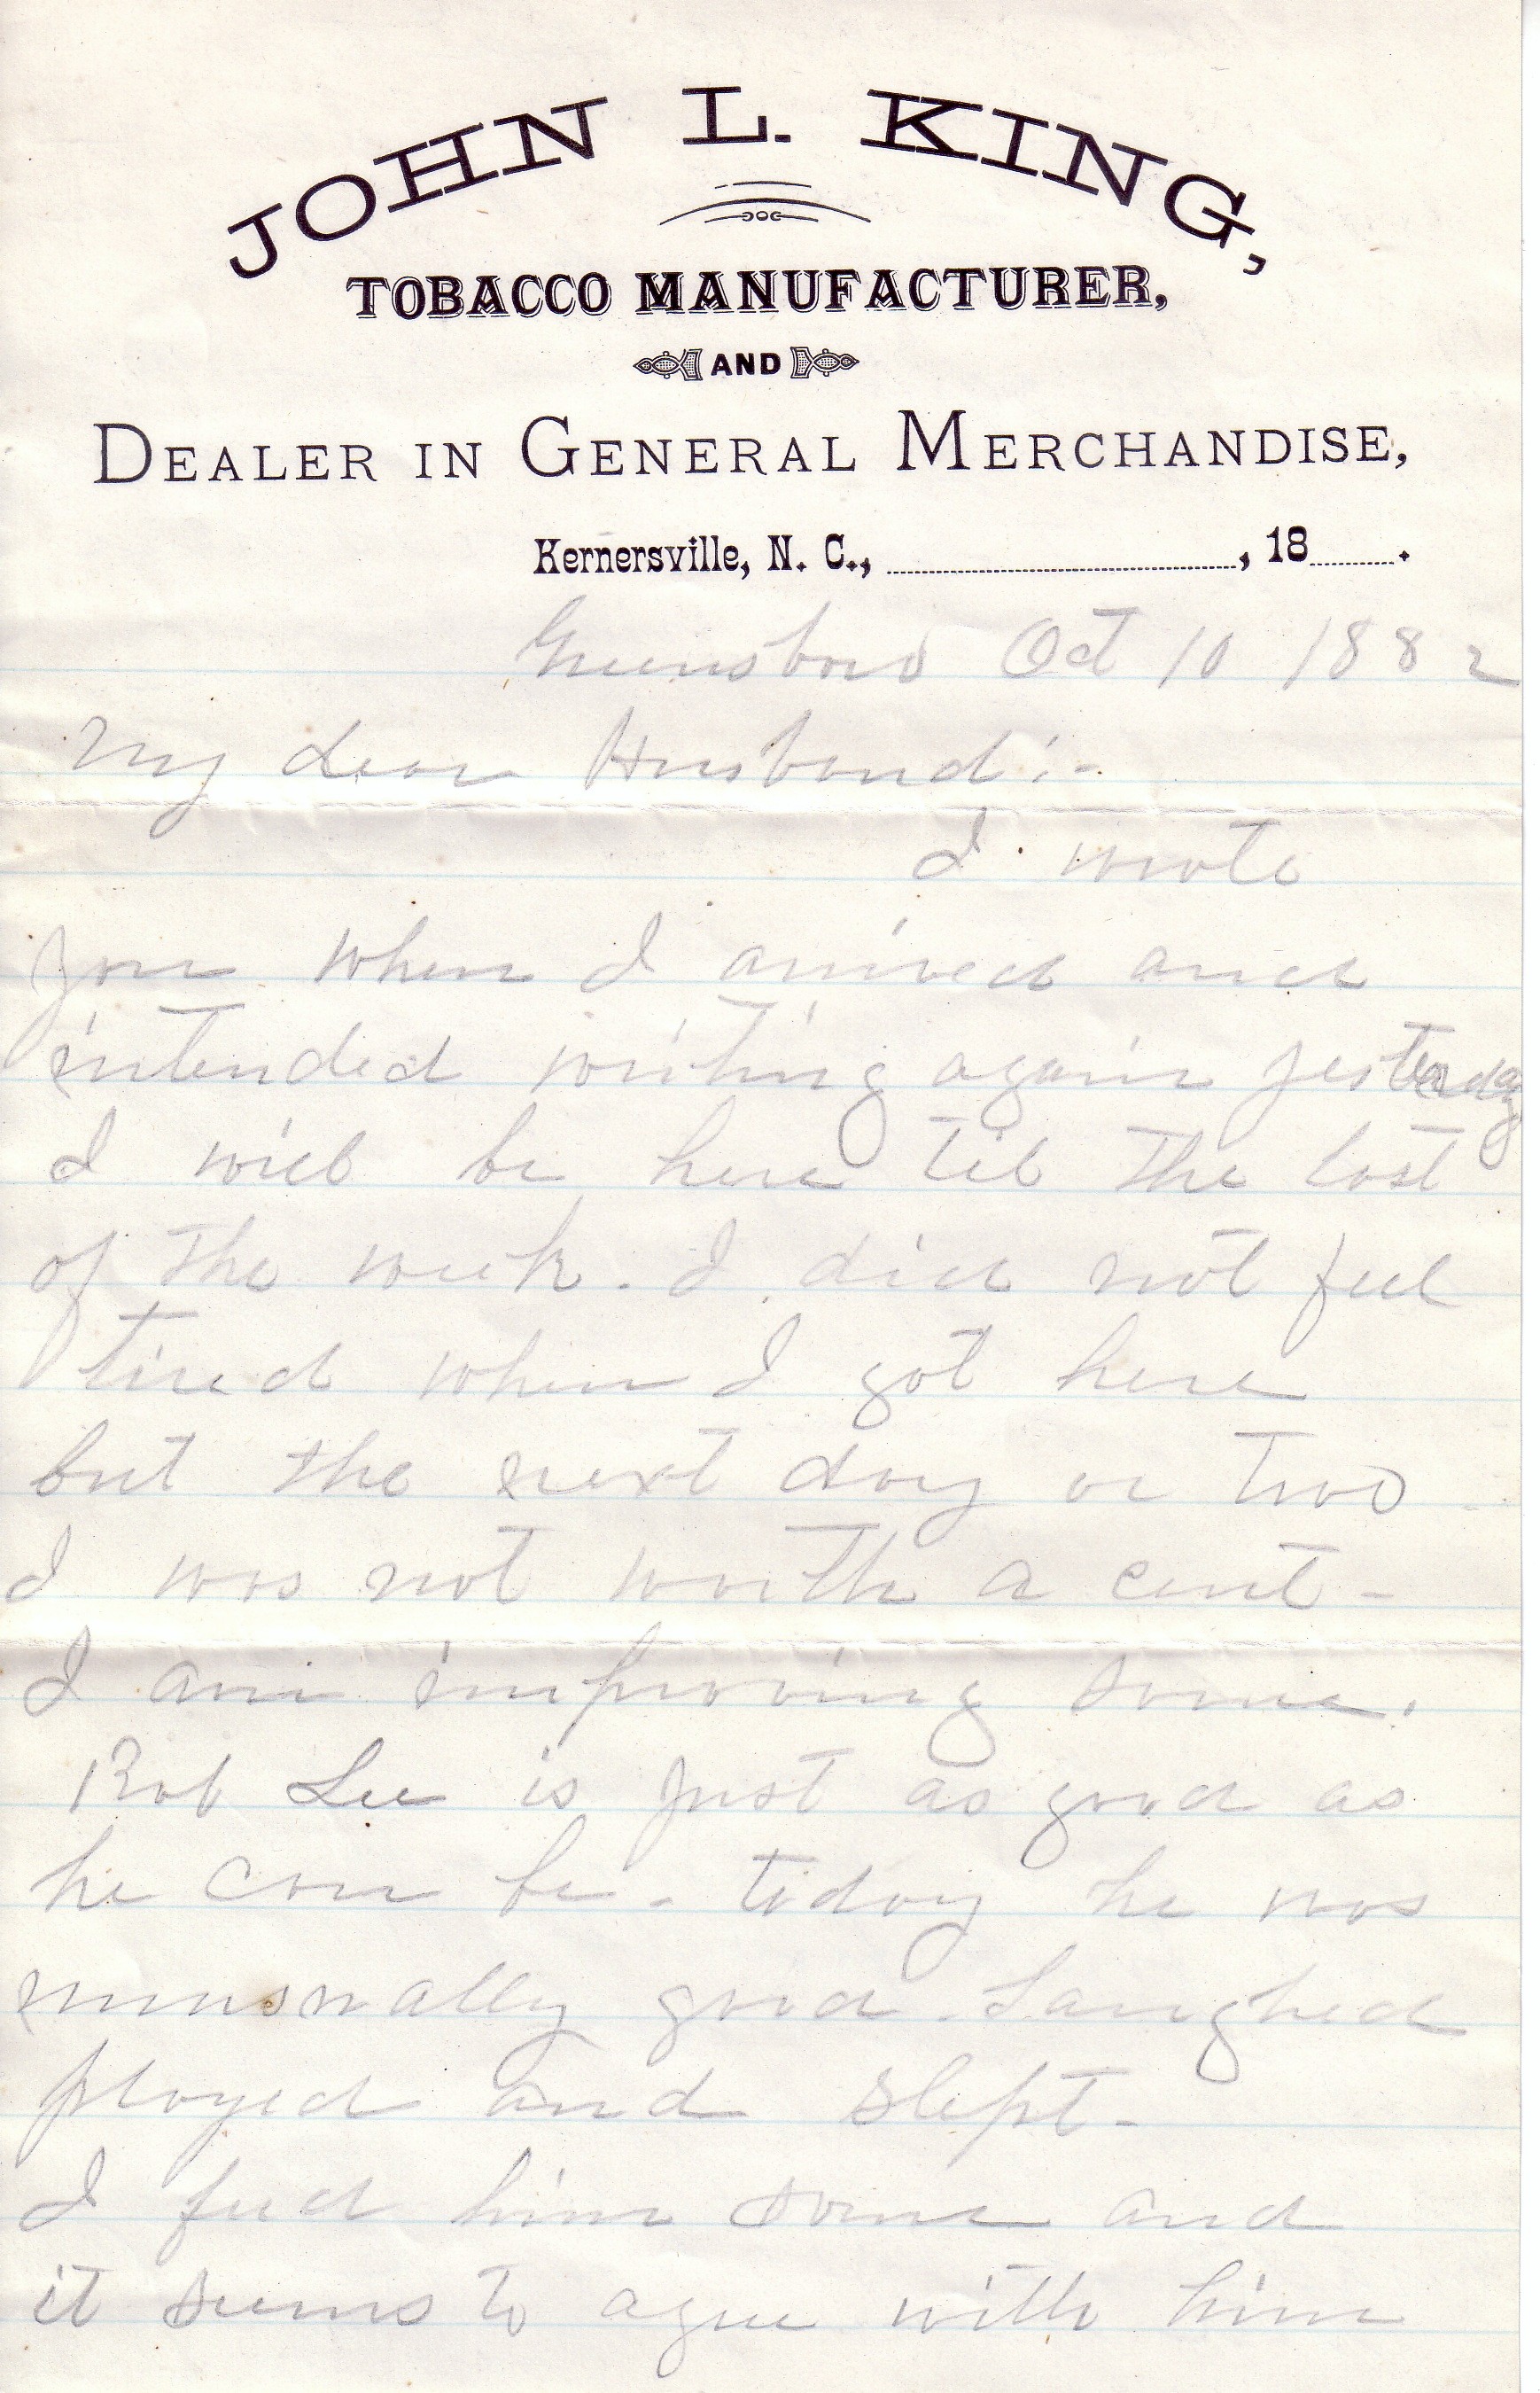 JOHN L. KING,
TOBACCO MANUFACTURER,
AND
DEALER IN GENERAL MERCHANDISE,
Kernersville, N. C., , 18 .
Greensboro Oct 10 1882
My dear Husband:-
I wrote
you when I arrived and
intended writing again yesterday
I will be here till the last
of the week. I did not feel
tired when I got here
but the next day or two
I was not worth a cent-
I am improving some.
Rob Lee is just as good as
he can be - today he was
unusually good. Laughed
played and slept-
I feed him some and
it seems to agree with him